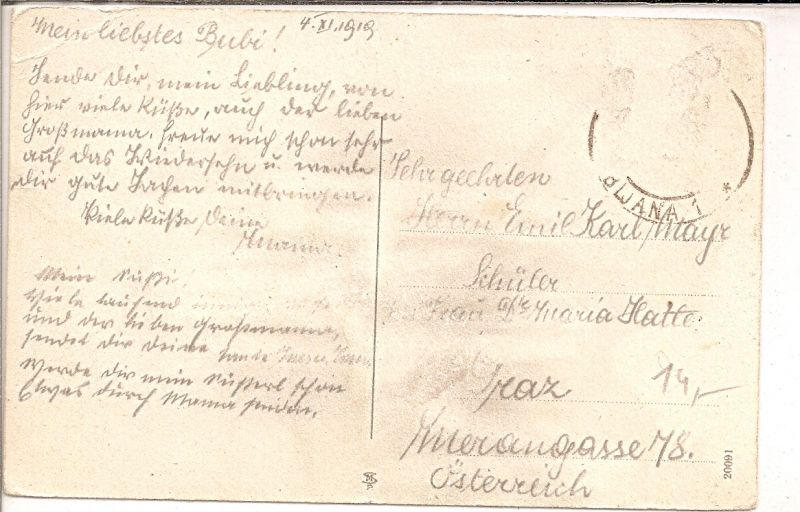 Mein liebstes Bubi!
4. XI. 1919
Sende Dir, mein Liebling, von
hier viele Küße, auch der lieben
Großmama. Freue mich schon sehr
auf das Wiedersehn u. werde
Dir gute Sachen mitbringen.
Viele Küße, Deine
Mama.
Mein Süßi!
Viele tausend
und der lieben Großmama,
sendet dir deine Tante
Werde dir mein Süßerl schon
Etwas durch Mama senden.
Sehr geehrten
Herrn Emil Karl Mayr
Schüler
Frau Dr. Maria Hatle
Graz
14,-
Merangasse 78.
Österreich
JANA 1 *
20091